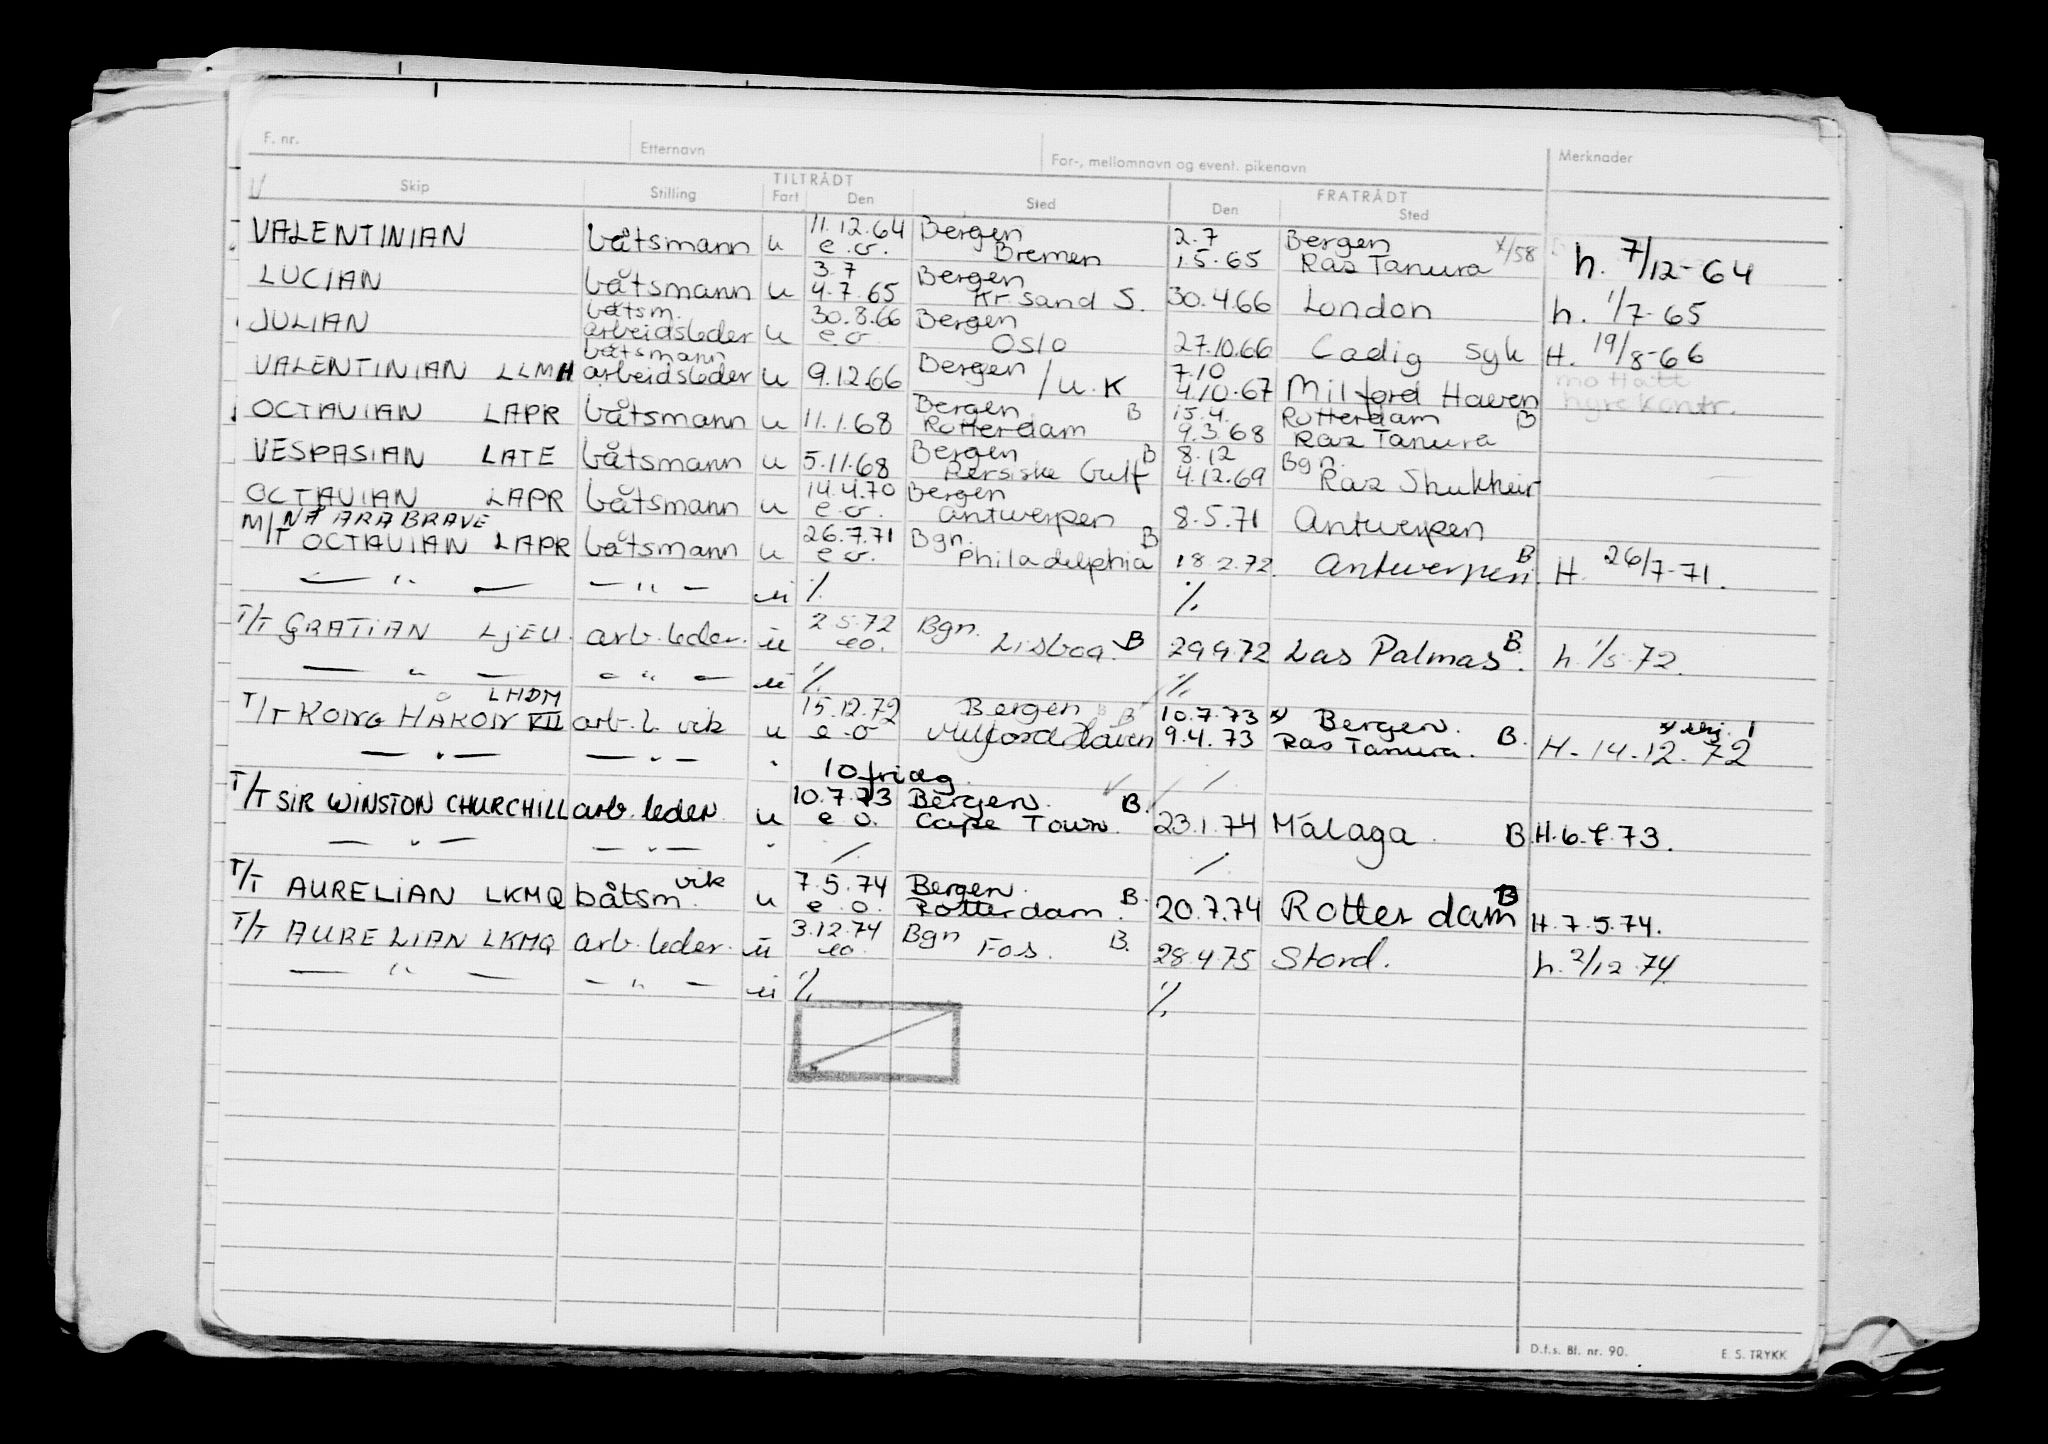 F. nr. Etternavn For-, mellomnavn og event. pikenavn Merknader
TILTRÅDT FRATRÅDT
Skip Stilling Fart Den Sted Den Sted
VALENTINIAN båtsmann u 11.12.64 e.o. Bergen Bremen 2.7 1.5.65 Bergen Ras Tanura x/58 h. 7/12-64
LUCIAN båtsmann u 3.7 4.7.65 Bergen Kr.sand S. 30.4.66 London h. 1/7-65
JULIAN båtsm. arbeidsleder u 30.8.66 e.o. Bergen Oslo 27.10.66 Cadig syk H. 19/8-66
VALENTINIAN LLMH båtsmann arbeidsleder u 9.12.66 Bergen /U.K 7.10 4.10.67 Milford Haven mottatt hyrekontr.
OCTAVIAN LAPR båtsmann u 11.1.68 Bergen Rotterdam B 15.4. 9.3.68 Rotterdam Raz Tanura B
VESPASIAN LATE båtsmann u 5.11.68 Bergen Persiske Gulf B 8.12 4.12.69 Bgn. Raz Shukheir
OCTAVIAN LAPR båtsmann u 14.4.70 e.o. Bergen Antwerpen 8.5.71 Antwerpen
NÅ ARABRAVE
M/T OCTAVIAN LAPR båtsmann u 26.7.71 e.o. Bgn. Philadelphia B 18.2.72. Antwerpen B H. 26/7-71.
— " — — " — u ./. ./.
T/T GRATIAN LJEU. arb.leder. u 2.5.72 eo. Bgn. Lisboa. B 29.9.72 Las Palmas B. h. 1/5.72.
— " — — " — u ./. ./.
T/T KONG HÅKON VII LHDM arb.l. vik u 15.12.72 e.o Bergen Milford Haven B 10.7.73 x) 9.4.73 Bergen. Ras Tanura. B. H-14.12.72
— " — — " — " ./.
10 fridg.
T/T SIR WINSTON CHURCHILL arb.leder u 10.7.73 e.o. Bergen. Cape Town. B. 23.1.74 Málaga. B H.6.7.73.
— " — — " — " ./. ./.
T/T AURELIAN LKMQ båtsm. vik u 7.5.74 e.o. Bergen. Rotterdam. B. 20.7.74 Rotterdam B H.7.5.74.
T/T AURELIAN LKMQ arb.leder. u 3.12.74 eo. Bgn Fos. B. 28.4.75 Stord. h. 2/12.74.
— " — — " — u ./. ./.
D.f.s. Bl. nr. 90. E. S. TRYKK